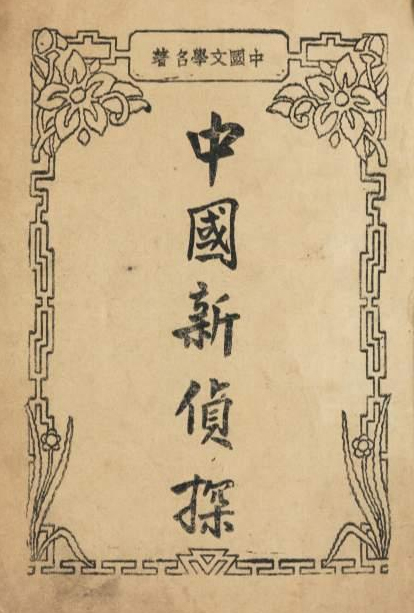 中國文學名著
中國新偵探